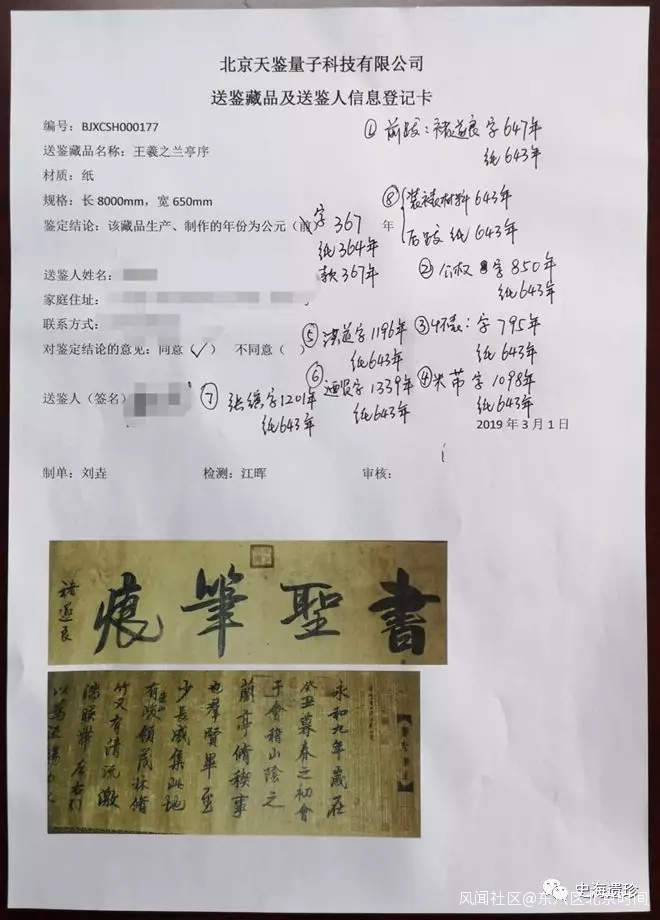 北京天鉴量子科技有限公司
送鉴藏品及送鉴人信息登记卡
编号：BJXCSH000177
①前跋：褚遂良 字647年
纸643年
送鉴藏品名称：王羲之兰亭序
材质：纸
规格：长 8000mm，宽 650mm
⑧装裱材料643年
后跋 纸643年
鉴定结论：该藏品生产、制作的年份为公元（前）字367年
纸364年
款367年
②公权 字850年
纸643年
送鉴人姓名：
家庭住址：
联系方式：
⑤ 字1196年
纸643年
③ 字795年
纸643年
对鉴定结论的意见：同意（✓） 不同意（ ）
⑥ 字1339年
纸643年
④米芾 字1098年
纸643年
送鉴人（签名）
⑦张 字1201年
纸643年
2019 年 3 月 1 日
制单：刘垚 检测：江晖 审核：
書聖筆痕
褚遂良
永和九年歲在
癸丑暮春之初會
于會稽山陰之
蘭亭脩稧事
也羣賢畢至
少長咸集此地
有崇山峻領茂林脩
竹又有清流激
湍暎帶左右引
以為流觴
史海遗珍
风闻社区@东八区北京时间